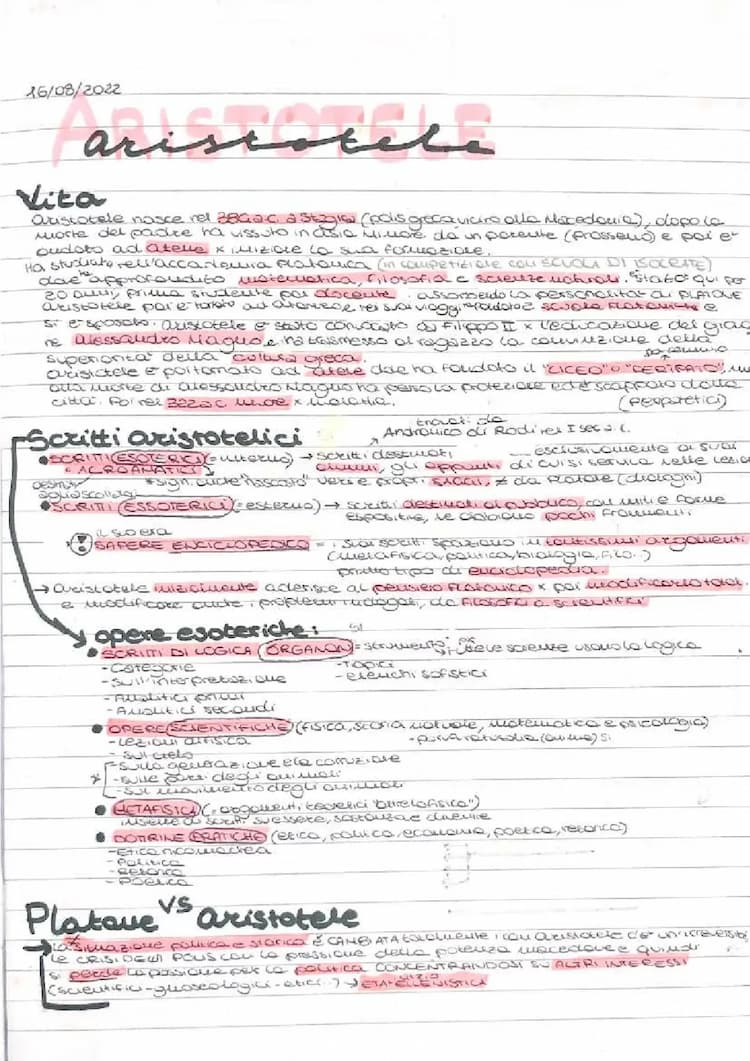 16/08/2022
ARISTOTELE
aristotele
Vita
aristotele nasce nel 384 a.c. a Stagira (polis greca vicino alla Macedonia), dopo la
morte del padre ha vissuto in asia minore da un parente (prosseno) e poi e'
andato ad atene x iniziare la sua formazione.
Ha studiato nell'accademia platonica (in competizione con SCUOLA DI ISOCRATE)
dove ha approfondito matematica, filosofia e scienze naturali. stato qui per
20 anni, prima studente poi docente. assorbendo la personalità di PLATONE
aristotele poi e' ad e nei suoi viaggi ha fondato scuole platoniche e
si e' sposato. aristotele e' stato convocato da Filippo II x l'educazione del giova
ne alessandro Magno e ha trasmesso al ragazzo la convinzione della
superiorita' della cultura greca.
aristotele e' poi tornato ad atene dove ha fondato il "LICEO" o "PERIPATO", ma
alla morte di alessandro Magno ha perso la protezione ed e' scappato dalla
citta'. Poi nel 322 a.c. muore x malattia. (peripatetici)
Scritti aristotelici
trovati da
Andronico di Rodi nel I sec a.c.
• SCRITTI ESOTERICI (= interno) → scritti destinati esclusivamente ai suoi
o ACROAMATICI alunni, gli appunti di cui si serviva nelle lezioni
* sign. anche "nascosto" veri e propri saggi, ≠ da Platone (dialoghi)
• SCRITTI ESSOTERICI (= esterno) → scritti destinati al pubblico, con miti e forme
espositive, ne abbiamo pochi frammenti
il suo era
SAPERE ENCICLOPEDICO = i suoi scritti spaziano in tantissimi argomenti
(metafisica, politica, biologia, filo..)
primo tipo di enciclopedia.
→ aristotele inizialmente aderisce al pensiero platonico x poi modificarlo total.
e modificare anche i problemi indagati, da filosofici a scientifici
opere esoteriche:
• SCRITTI DI LOGICA (ORGANON) = strumento, tutte le scienze usano la logica
- Categorie - Topici
- Sull'interpretazione - elenchi sofistici
- Analitici primi
- Analitici secondi
• OPERE SCIENTIFICHE (fisica, storia naturale, matematica e psicologia)
- Lezioni di fisica - parva naturalia (anima)
- sul cielo
- sulla generazione e la corruzione
* - sulle parti degli animali
- sul movimento degli animali
• METAFISICA (= argomenti teoretici "oltre la fisica")
insieme di scritti su essere, sostanza e divenire
• DOTTRINE PRATICHE (etica, politica, economia, poetica, retorica)
- Etica nicomachea
- Politica
- Retorica
- Poetica
Platone vs aristotele
→ la situazione politica e storica È CAMBIATA totalmente: con aristotele c'e'
le CRISI DELLE POLIS con la pressione della potenza macedone e quindi
si perde la passione per la politica CONCENTRANDOSI SU ALTRI INTERESSI
(scientifici-gnoseologici-etici..) → inizio ETA' ELLENISTICA